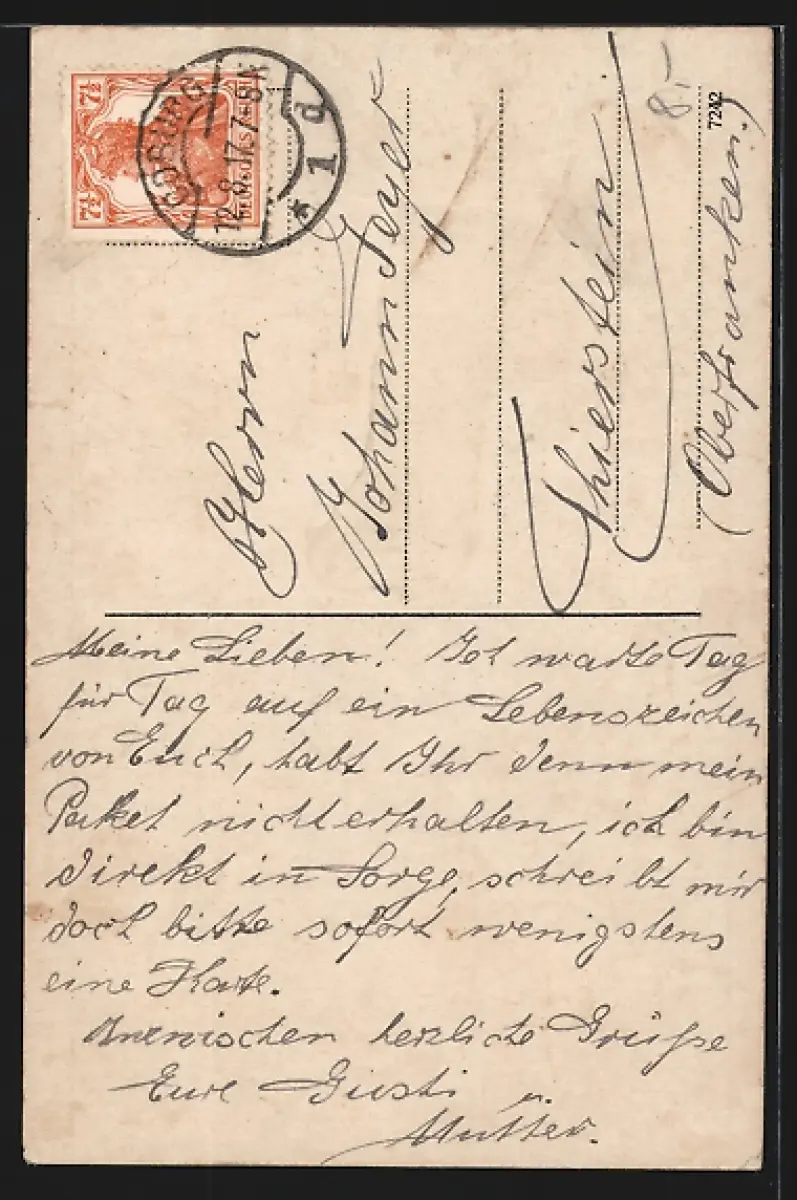 7½ 7½
COBURG
12.8.17.7-8N.
* 1d
Herrn
Johann Feyer
Thierstein
(Oberfranken.)
8.-
7242
Meine Lieben! Ich warte Tag
für Tag auf ein Lebenszeichen
von Euch, habt Ihr denn mein
Paket nicht erhalten, ich bin
direkt in Sorge, schreibt mir
doch bitte sofort wenigstens
eine Karte.
Inzwischen herzliche Grüße
Eure Gusti u.
Mutter.